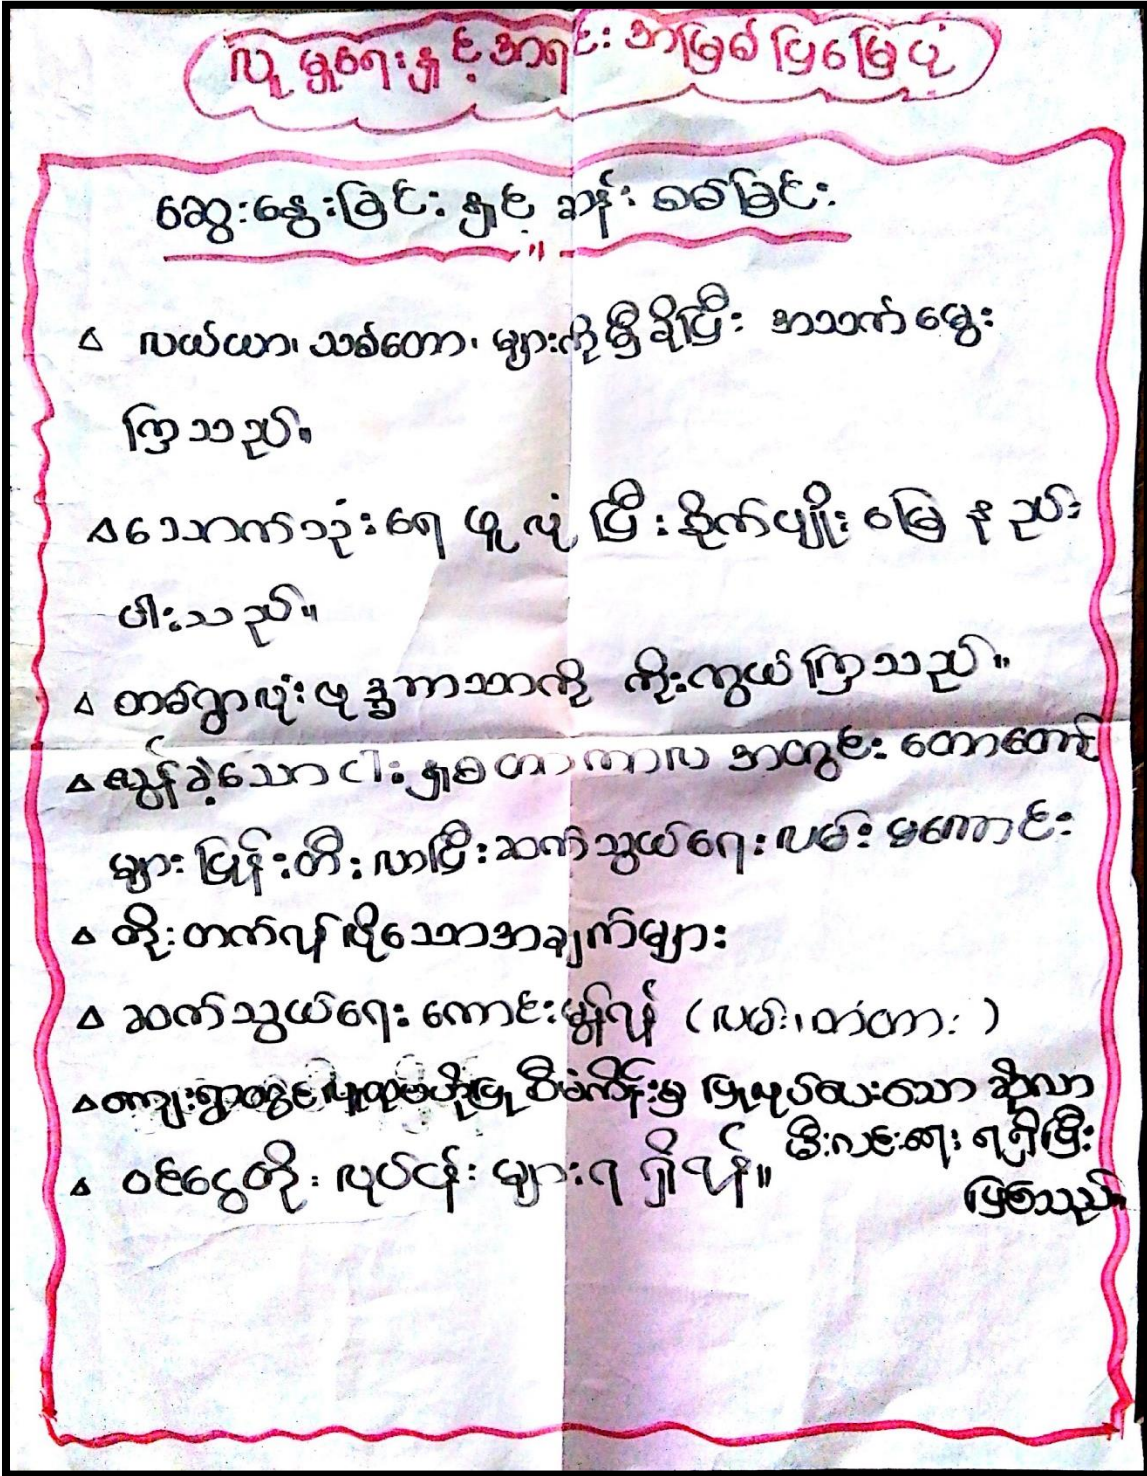 လူမှုရေးနှင့်အရင်းအမြစ်ပြမြေပုံ
ဆွေးနွေးခြင်းနှင့် ဆန်းစစ်ခြင်း
∆ လယ်ယာ၊ သစ်တော၊ များကိုမှီခိုပြီး အသက်မွေး
ကြသည်။
∆ သောက်သုံးရေ ဖူလုံပြီး စိုက်ပျိုးမြေ နည်း
ပါးသည်။
∆ တစ်ရွာလုံးဗုဒ္ဓဘာသာကို ကိုးကွယ်ကြသည်။
∆ လွန်ခဲ့သော ငါးနှစ်တာကာလ အတွင်း တောတောင်
များ ပြုန်းတီးလာပြီး ဆက်သွယ်ရေးလမ်း မကောင်း
∆ တိုးတက်လိုသောအချက်များ
∆ ဆက်သွယ်ရေး ကောင်းမွန်ရန် (လမ်း၊တံတား)
∆ ကျေးရွာတွင် စီမံကိန်းမှ ပြုလုပ်ပေးသော ဆိုလာ
မီးလင်းရေး ရရှိပြီး
∆ ဝင်ငွေတိုး လုပ်ငန်းများရရှိရန်။
ဖြစ်သည်။